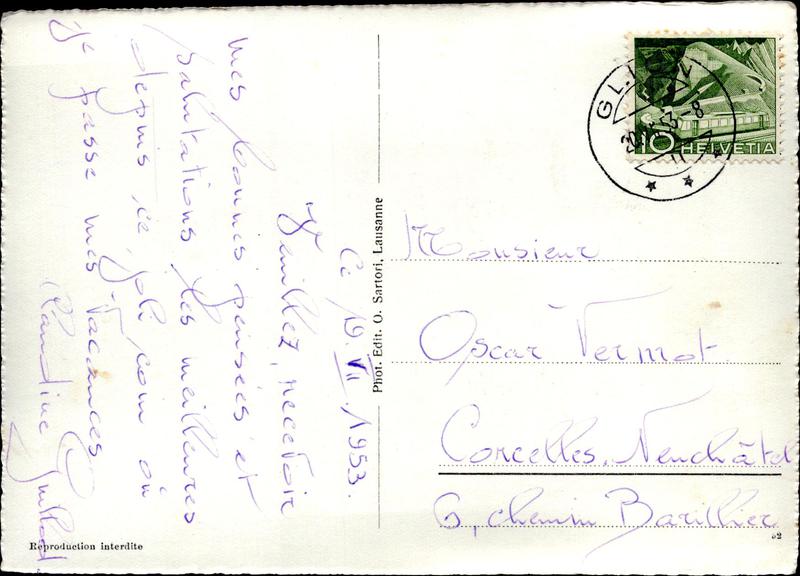 Ce 19.VII.1953.
Veuillez, recevoir
mes bonnes pensées et
salutations les meilleures
depuis ce joli coin où
je passe mes vacances
Claudine
Phot. Edit. O. Sartori, Lausanne
Reproduction interdite
HELVETIA
10
Monsieur
Oscar Vermot
Corcelles, Neuchâtel
6, chemin Barillier